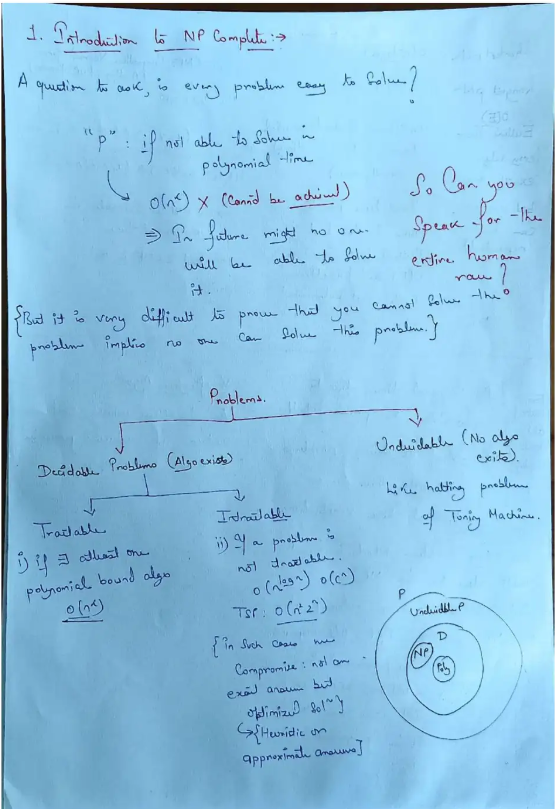 1. Introduction to NP Complete :→
A question to ask, is every problem easy to solve?
"P" : if not able to solve in
polynomial time
O(n^k) X (Cannot be achieved)
⇒ In future might no one
will be able to solve
it.
So Can you
speak for the
entire human
race?
{But it is very difficult to prove that you cannot solve the
problem implies no one can solve this problem.}
Problems.
Decidable Problems (Algo exists)
Undecidable (No algo
exists).
Like halting problem
of Turing Machine.
Tractable
i) if ∃ atleast one
polynomial bound algo
O(n^k)
Intractable
ii) If a problem is
not tractable.
O(n^log n) O(c^n)
TSP : O(n^2 2^n)
{in such cases we
Compromise : not an
exact answer but
optimized sol^n}
↳{Heuristic or
approximate answers]
P
Undecidable P
D
NP
Poly